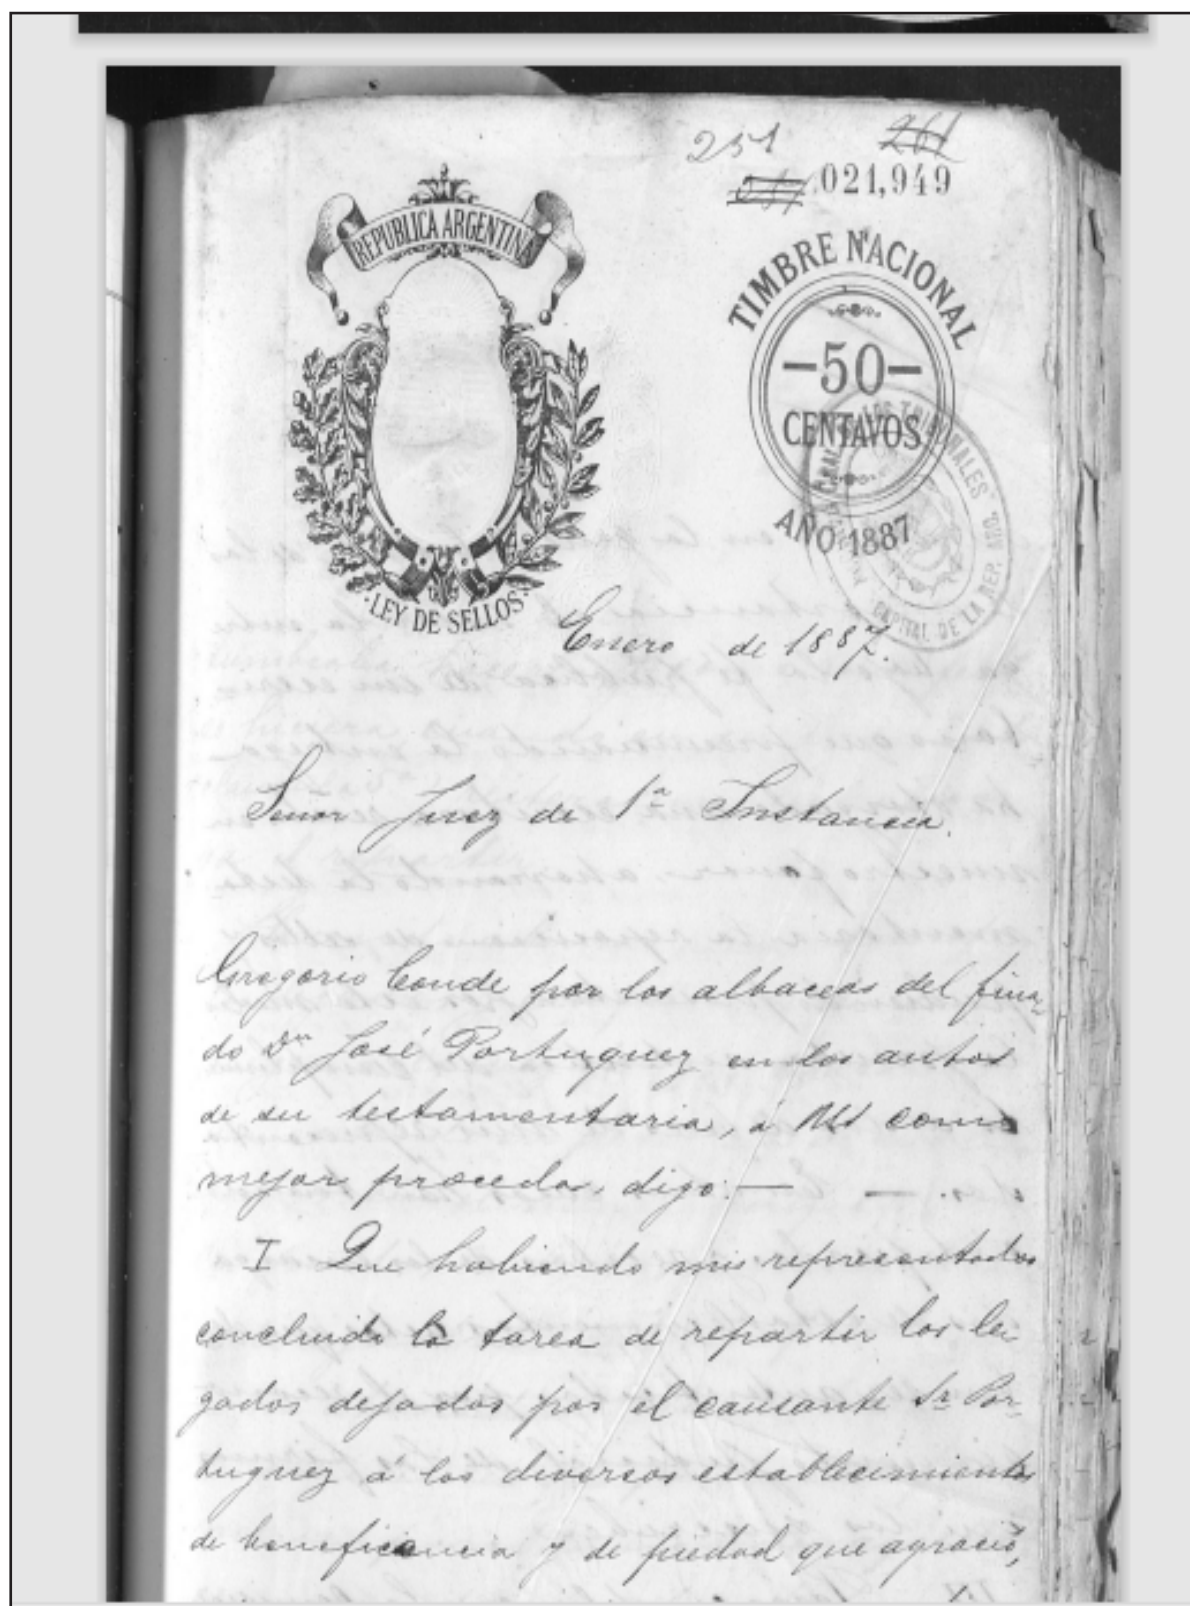 251 261
021,949
REPUBLICA ARGENTINA
TIMBRE NACIONAL
-50-
CENTAVOS
AÑO 1887
LOS TRIBUNALES
CAPITAL DE LA REP.
LEY DE SELLOS
Enero de 1887.
Señor Juez de 1ª Instancia.
Gregorio Conde por los albaceas del fina-
do Dn José Portuguez en los autos
de su testamentaria, á US como
mejor proceda, digo: —
I Que habiendo mis representados
concluido la tarea de repartir los le-
gados dejados por el causante Sr Por-
tuguez á los diversos establecimientos
de beneficencia y de piedad que agració,